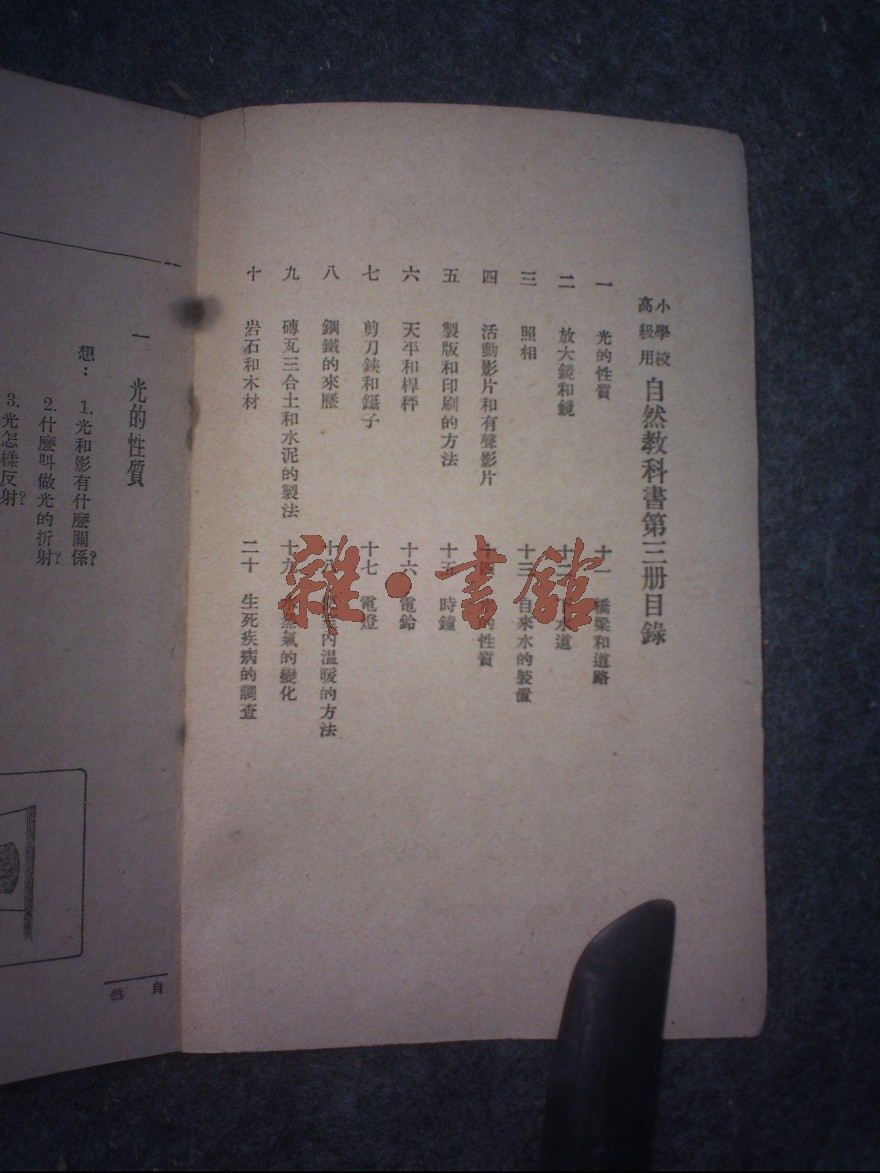 小學校
高級用
自然教科書第三册目錄
一 光的性質
二 放大鏡和鏡
三 照相
四 活動影片和有聲影片
五 製版和印刷的方法
六 天平和桿秤
七 剪刀鋏和鑷子
八 鋼鐵的來歷
九 磚瓦三合土和水泥的製法
十 岩石和木材
十一 橋梁和道路
十二 下水道
十三 自來水的裝置
十四 的性質
十五 時鐘
十六 電鈴
十七 電燈
十八 室內溫暖的方法
十九 天然氣的變化
二十 生死疾病的調查
雜·書館
一 光的性質
想：1.光和影有什麼關係？
2.什麼叫做光的折射？
3.光怎樣反射？
自然